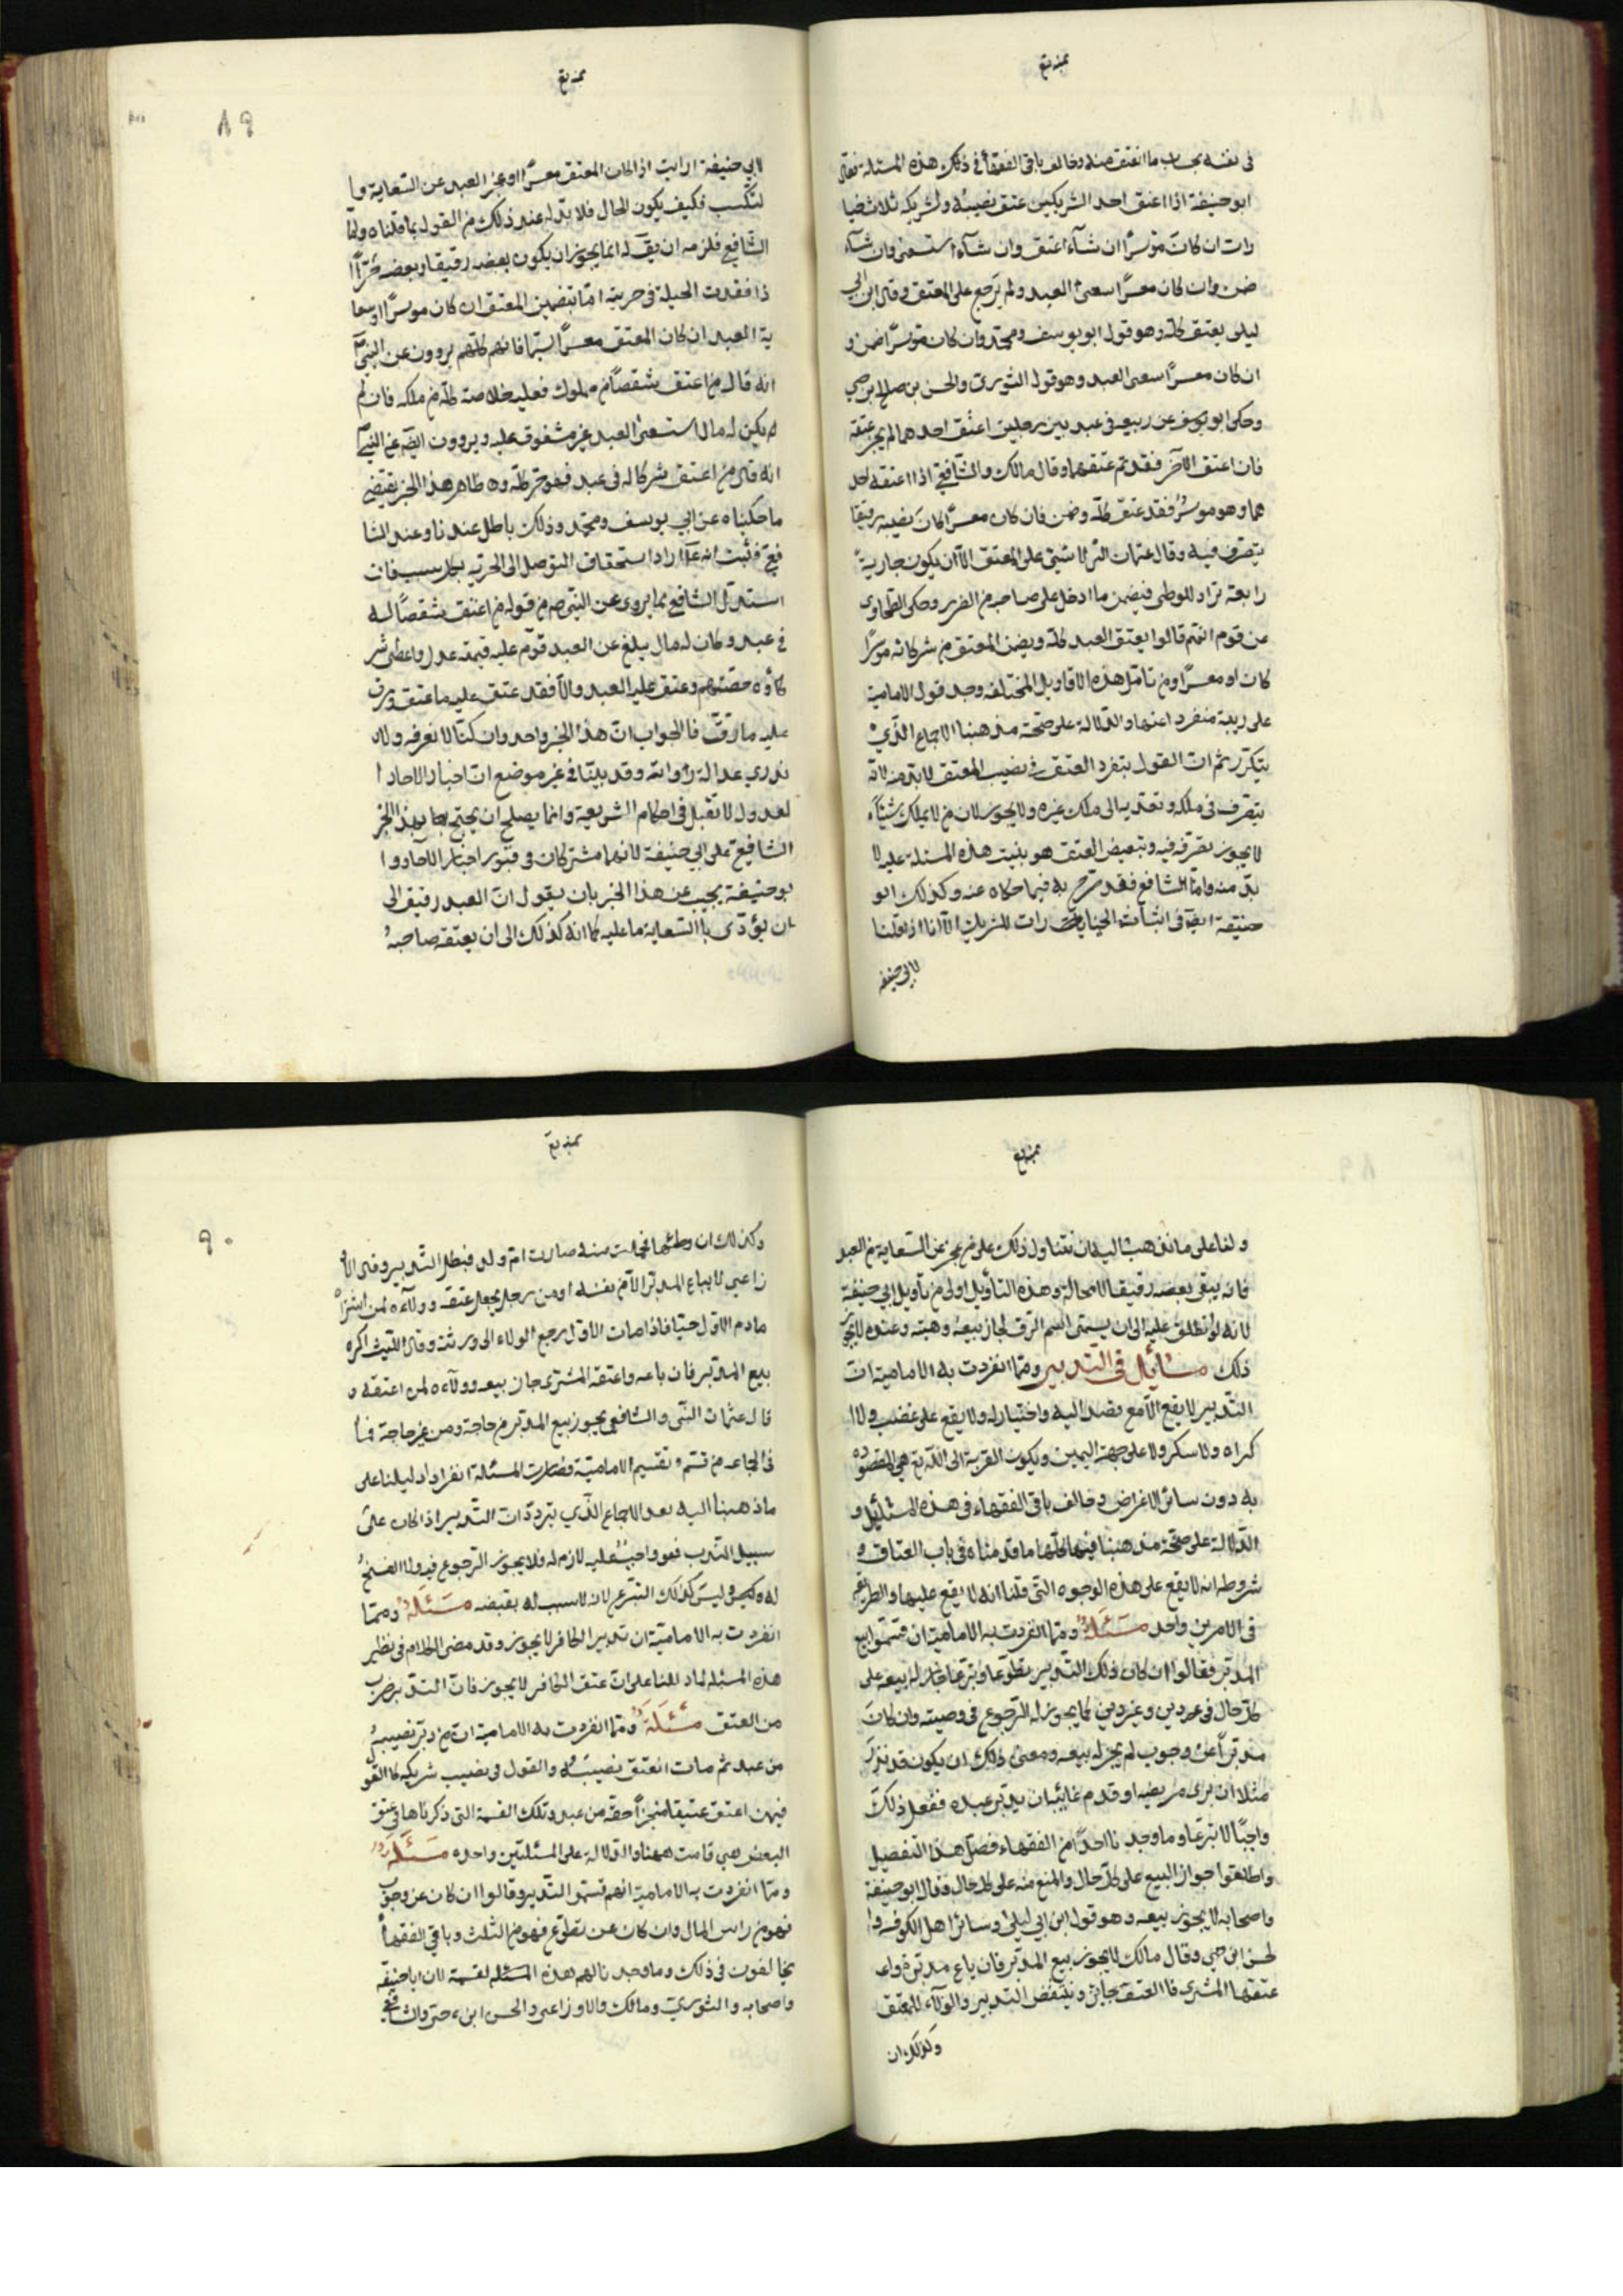 في نفسه بحساب ما انعتق منه وخالف باقي الفقهأ في ذلك هذه المسئلة فقال
ابو حنيفة اذا اعتق احد الشريكين عتق نصيبه ولشريكه ثلاث خيا
رات ان كان موسرًا ان شآء اعتق وان شآء استسعى وان شآء
ضمن وان كان معسرًا سعى العبد ولم يرجع على المعتق وقال ابن ابي
ليلى يعتق كله وهو قول ابو يوسف ومحمد وان كان موسرًا ضمن و
ان كان معسرًا سعى العبد وهو قول الثوري والحسن بن صالح بن حي
وحكى ابو يوسف عن ربيعه في عبد بين رجلين اعتق احدهما لم يجز عتقه
فان اعتق الآخر فقد تم عتقهما وقال مالك والشافعي اذا اعتقه احد
هما وهو موسرٌ فقد عتق كله وضمن فان كان معسرًا كان نصيبه رقيقا
يتصرف فيه وقال عثمان التي لا شئ على المعتق الا ان يكون جارية
رابعة تراد للوطى فيضمن ما ادخل على صاحبه من الضرر وحكى الطحاوي
عن قوم انهم قالوا يعتق العبد كله ويضمن المعتق من شركائه موسرًا
كان او معسرًا ومن تأمل هذه الاقاويل المختلفه وجد قول الامامية
على ريبة منفرد اعنها والدلالة على صحة مذهبنا الاجماع الذي
يتكرر ثم ان القول بتفرد العتق في نصيب المعتق لابد منه لانه
يتصرف في ملكه وتعديه الى ملك غيره ولا يجوز لان من لا يملك شيئًا
لا يجوز تصرفه فيه وتبعيض العتق هو يثبت هذه المسئلة عليه لا
بد منه واما الشافعي فقد صرح به فيما حكاه عنه وكذلك ابو
حنيفة ايضًا في اثبات الخيارات للشريك الا انا اذ قلنا
لابي حنيفه
٨٩
لابي حنيفة ارايت اذا كان المعتق معسرًا او عجز العبد عن السعاية وا
لتكسب فكيف يكون الحال فلا بد له عند ذلك من القول بما قلناه واما
الشافعي فلزمه ان يق له انما يجوز ان يكون بعضه رقيقا وبعضه حرًا ا
ذا فقدت الحيلة في حريته اما بتضمين المعتق ان كان موسرًا او سعا
ية العبد ان كان المعتق معسرًا سيما فانهم كلهم يروون عن النبي
انه قال من اعتق شقصًا من مملوك فعليه خلاصه كله من ملكه فان لم
يكن له مال استسعى العبد غير مشقوق عليه ويروون ايضًا عن النبي
انه قال من اعتق شركا له في عبد فهو حر كله وه ظاهر هذا الخبر يقتضي
ما حكيناه عن ابي يوسف ومحمد وذلك باطل عندنا وعند الشا
فعي فثبت انه ع اراد استحقاق التوصل الى الحرية بكل سبب فان
استدل الشافعي بما يروى عن النبي ص من قوله من اعتق شقصًا له
في عبد وكان له مال يبلغ عن العبد قوم عليه قيمة عدل واعطى شر
كاؤه حصتهم وعتق عليه العبد والا فقد عتق عليه ما عتق ورق
عليه ما رق فالجواب ان هذا الخبر واحد وان كنا لا نعرفه ولا
ندري عدالة رواته وقد بينا في غير موضع ان اخبار الاحاد ا
لعدول لا تقبل في احكام الشريعة وانما يصلح ان يحتج بها بهذا الخبر
الشافعي على ابي حنيفة لانهما مشتركان في قبول اخبار الآحاد وا
بو حنيفة يجيب عن هذا الخبر بان يقول ان العبد رقيق الى
ان يؤدي بالسعاية ما عليه كما انه كذلك الى ان يعتقه صاحبهُ
ولنا على ما نذهب اليه ان نتناول ذلك على من عجز عن السعاية من العبد
فانه يبقى بعضه رقيقا لا محالة وهذه التأويل اولى من تأويل ابي حنيفة
لانه لو انطلق عليه الى ان يسمى السم الرق لجاز بيعه وهبته وعنده لا يجوز
ذلك مسائل في التدبير ومما انفردت به الامامية ان
التدبير لا يقع الا مع قصد اليه واختيار له ولا يقع على غضب ولا ا
كراه ولا سكر ولا على جهة اليمين ويكون القربة الى الله تع هي المقصوده
به دون سائر الاغراض وخالف باقي الفقهاء في هذه المسائل و
الدلالة على صحة مذهبنا فيها كلها ما قدمناه في باب العتاق و
شروطه انه لا يقع على هذه الوجوه التي قلنا انه لا يقع عليها والطريقة
في الامرين واحد مسئلة ومما انفردت به الامامية ان قسموا بيع
المدبر فقالوا ان كان ذلك التدبير تطوعًا وتبرعًا جاز له بيعه على
كل حال في دين وغير دين كما يجوز له الرجوع في وصيته وان كان
مدبرًا عن وجوب لم يجز له بيعه ومعنى ذلك ان يكون قد نذر
مثلا ان برئ مريضه او قدم غائبه ان يدبر عبده ففعل ذلك
واجبًا لا تبرعًا وما وجدنا احدًا من الفقهاء فصل هذا التفصيل
واطلقوا جواز البيع على كل حال والمنع منه على كل حال وقال ابو حنيفة
واصحابه لا يجوز بيعه وهو قول ابن ابي ليلى وسائر اهل الكوفه وا
لحسن ابن حي وقال مالك لا يجوز بيع المدبر فان باع مدبرة واعـ
عتقها المشتري فالعتق جائز وينتقض التدبير والولآء للمعتق
وكذلك ان
٩٠
وكذلك ان وطئها فحملت منه صارت ام ولد فبطل التدبير وقال الاو
زاعي لا يباع المدبر الا من نفسه او من رجل يعجل عتقه وولآءه لمن اشتراه
مادم الاول حيا فاذا مات الاول رجع الولاء الى ورثته وقال الليث اكره
بيع المدبر فان باعه واعتقه المشتري جاز بيعه وولآءه لمن اعتقه و
قال عثمان التي والشافعي يجوز بيع المدبر من حاجة ومن غير حاجة فـ
في الجماعه من قسم تقسيم الامامية وصارت المسئلة انفرادا دليلنا على
ما ذهبنا اليه بعد الاجماع الذي يتردد ان التدبير اذا كان على
سبيل النذر فهو واجبٌ عليه لازم له فلا يجوز الرجوع فيه ولا الفسخ
له وليس كذلك التبرع لانه لا سبب له يقتضه مسئلة ومما
انفردت به الامامية ان تدبير الكافر لا يجوز وقد مضى الكلام في نظير
هذه المسئله لما دللنا على ان عتق الكافر لا يجوز فان التدبير ضرب
من العتق مسئلة ومما انفردت به الامامية ان من دبر نصيبهُ
من عبد ثم مات انعتق نصيبهُ والقول في نصيب شريكه كالقول
فيمن اعتق عتيقا منجزًا حقه من عبد وتلك القسمة التي ذكرناها في عتق
البعض هي قامت ههنا والدلالة على المسئلتين واحده مسئلة
ومما انفردت به الامامية انهم قسموا التدبير وقالوا ان كان عن وجوب
فهو من راس المال وان كان عن تطوع فهو من الثلث وباقي الفقهأ
يخالفون في ذلك وما وجدنا لهم هذه القسمة لان ابا حنيفه
واصحابه والثوري ومالك والاوزاعي والحسن ابن حي والشافعي